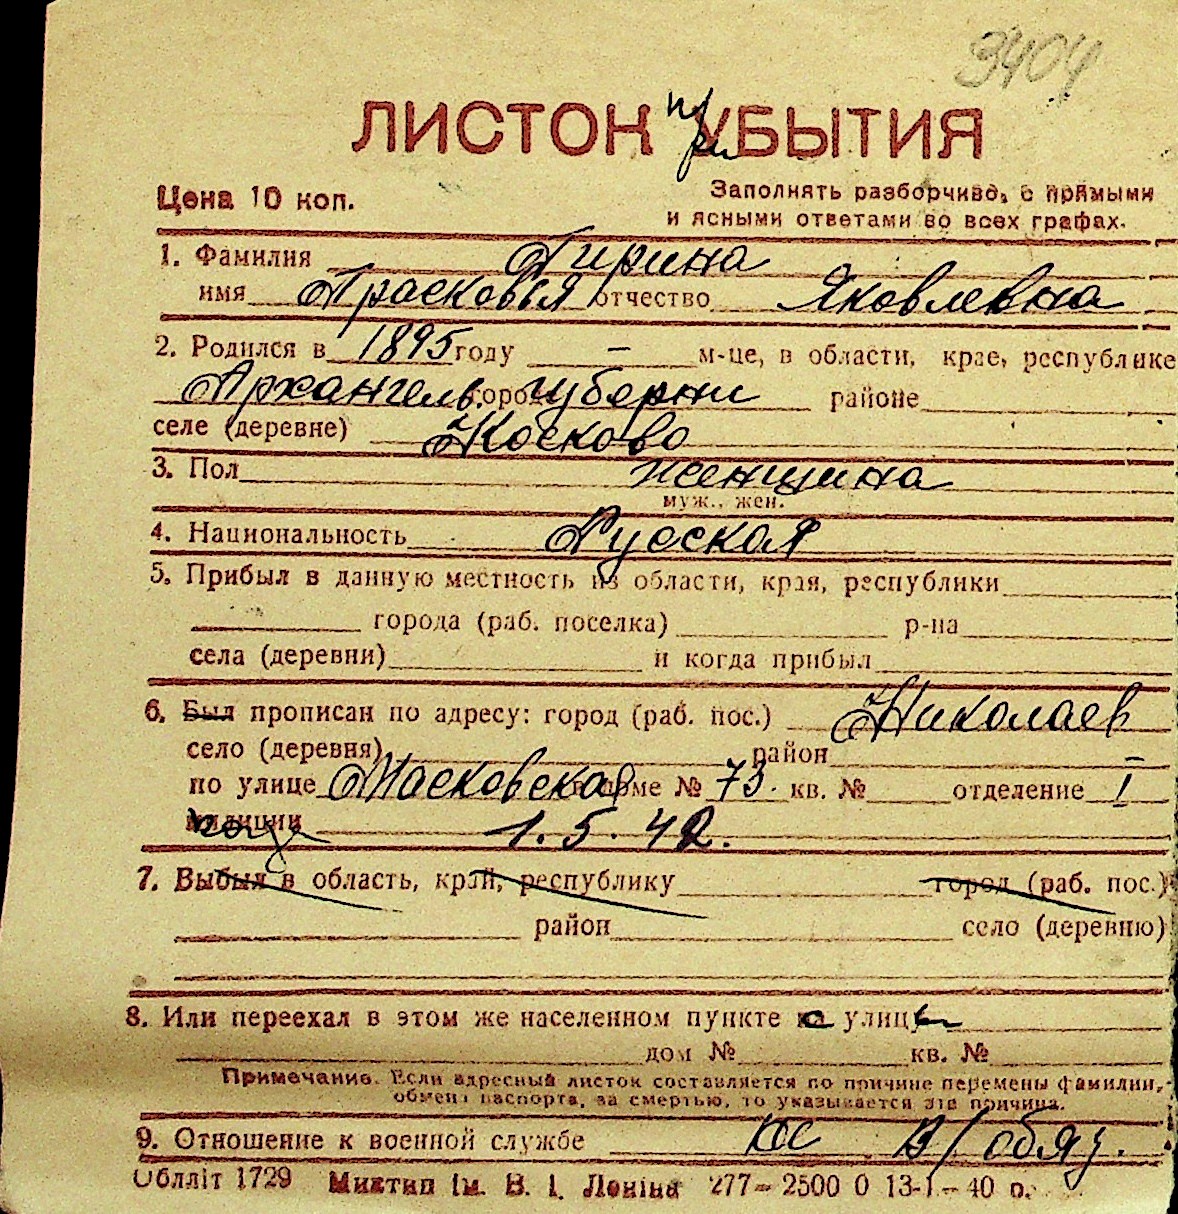 3404
ЛИСТОК при УБЫТИЯ
Цена 10 коп.
Заполнять разборчиво, с прямыми
и ясными ответами во всех графах.
1. Фамилия Тирина
имя Прасковья отчество Яковлевна
2. Родился в 1895 году — м-це, в области, крае, республике
Архангель. губерни районе
селе (деревне)
3. Пол женщина
муж., жен.
4. Национальность Русская
5. Прибыл в данную местность из области, края, республики
города (раб. поселка) р-на
села (деревни) и когда прибыл
6. Был прописан по адресу: город (раб. пос.) Николаев
село (деревня) район —
по улице Московская доме № 73. кв. № отделение I
милиции 1.5.42.
7. Выбыл в область, край, республику город (раб. пос.)
район село (деревню)
8. Или переехал в этом же населенном пункте с улицы
дом № кв. №
Примечание. Если адресный листок составляется по причине перемены фамилии,
обмена паспорта, за смертью, то указывается эта причина.
9. Отношение к военной службе не в/обяз.
Облліт 1729 Миктип ім. В. І. Леніна 277—2500 0 13-I—40 р.